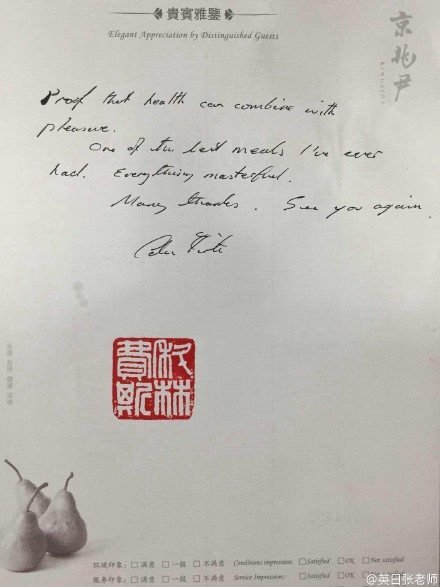 貴賓雅鑒
Elegant Appreciation by Distinguished Guests
京兆尹
KING'S JOY
Proof that health can combine with
pleasure.
One of the best meals I've ever
had. Everything masterful.
Many thanks. See you again.
Colin Firth
科林
費斯
环境印象: 满意 一般 不满意 Conditions impression: Satisfied OK Not satisfied
服务印象: 满意 一般 不满意 Service Impression: Satisfied OK
@英日张老师